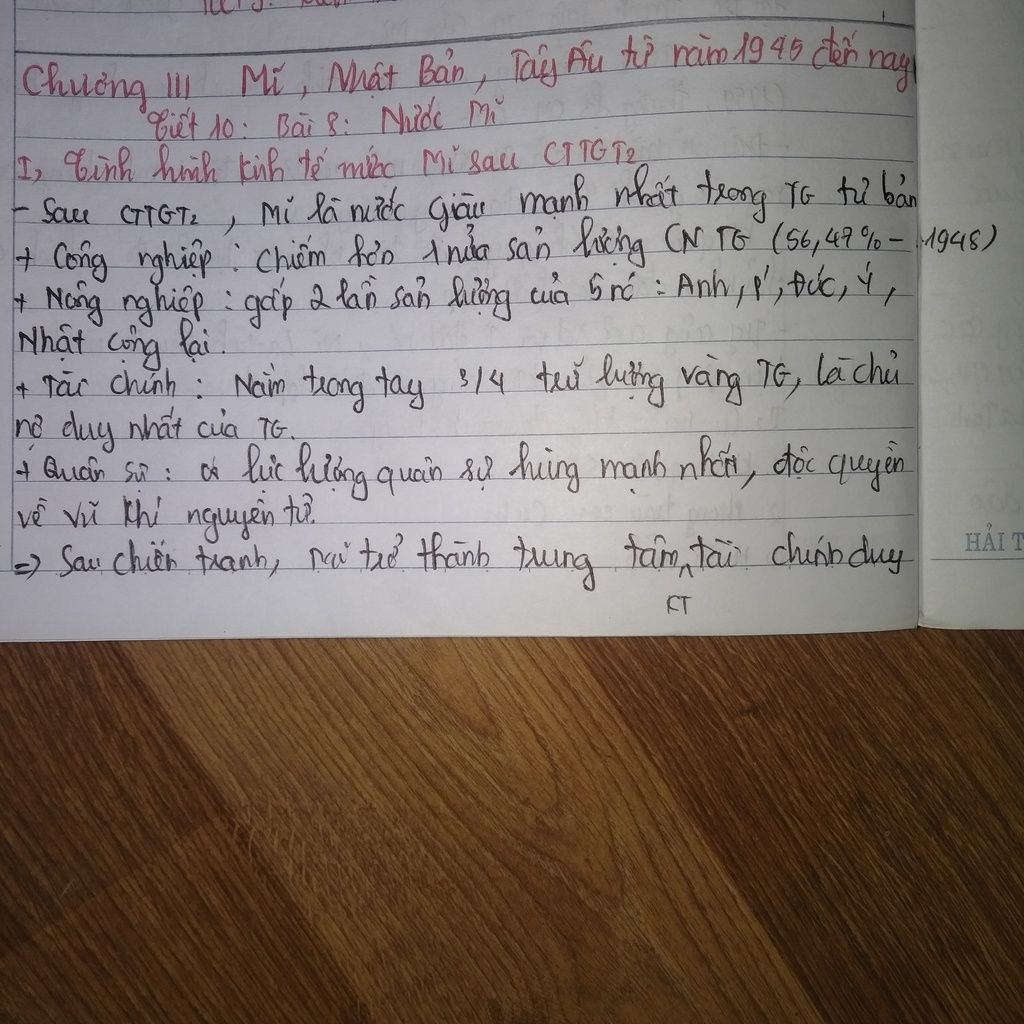 Chương III Mĩ, Nhật Bản, Tây Âu từ năm 1945 đến nay
Tiết 10: Bài 8: Nước Mĩ
I, Tình hình kinh tế nước Mĩ sau CTTGT2
- Sau CTTGT2, Mĩ là nước giàu mạnh nhất trong TG tư bản
+ Công nghiệp: chiếm hơn 1 nửa sản lượng CN TG (56,47% - 1948)
+ Nông nghiệp: gấp 2 lần sản lượng của 5 nc: Anh, P', Đức, Ý,
Nhật cộng lại.
+ Tài chính: Nắm trong tay 3/4 trữ lượng vàng TG, là chủ
nợ duy nhất của TG.
+ Quân sự: có lực lượng quân sự hùng mạnh nhất, độc quyền
về vũ khí nguyên tử.
=> Sau chiến tranh, trở thành trung tâm KT tài chính duy
HẢI T